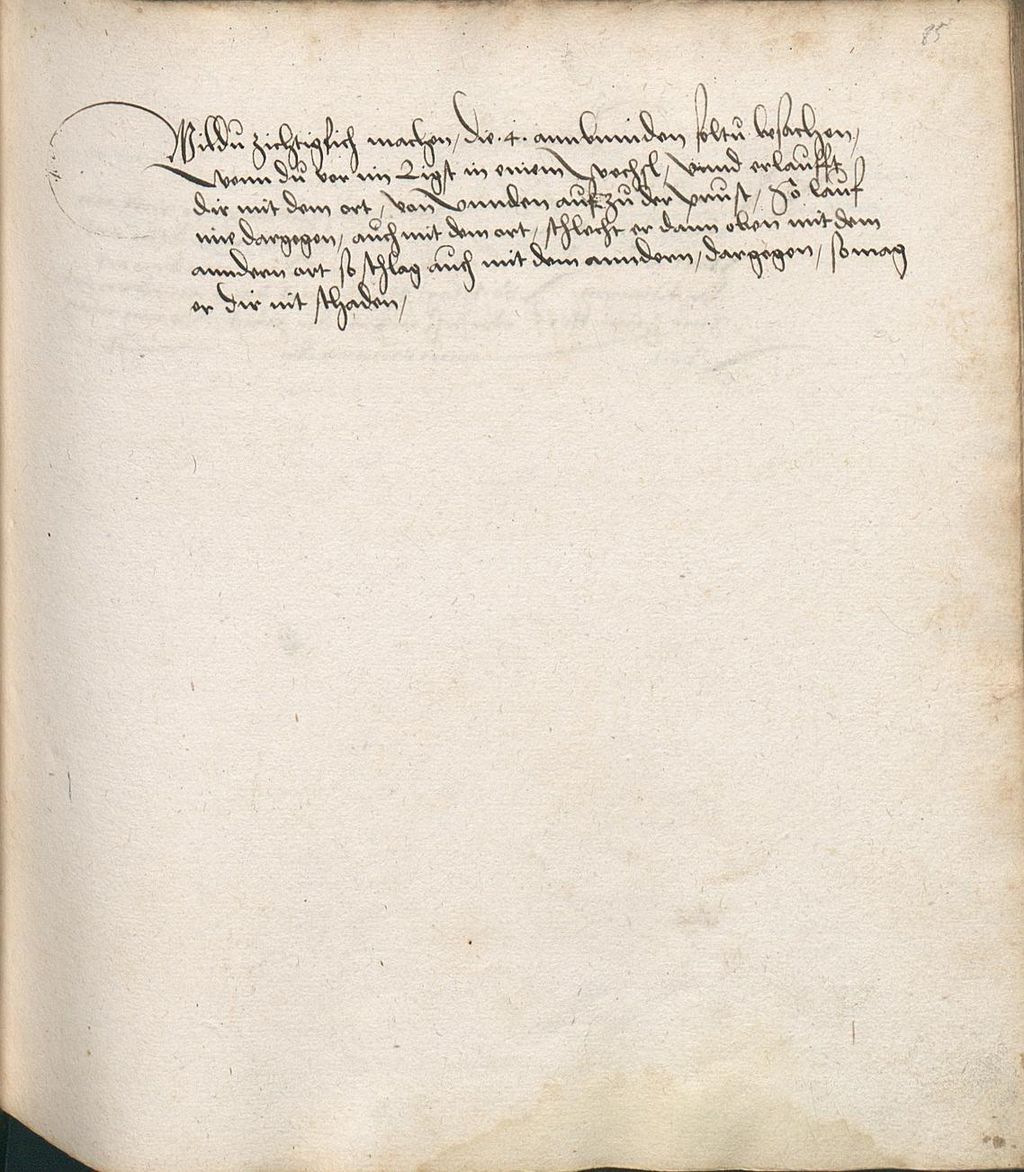 85
Willdu zichtigklich machen, die .4. annbinnden soltu besachen,
wenn du vor im Ligst in einem Wechsl, vnnd erlaufft
dir mit dem ort, von vnnden auf zu der prust, So lauf
nie dargegen, auch mit dem ort, schlecht er dann oben mit dem
anndern ort so schlag auch mit dem anndern, dargegen, so mag
er dir nit schaden,